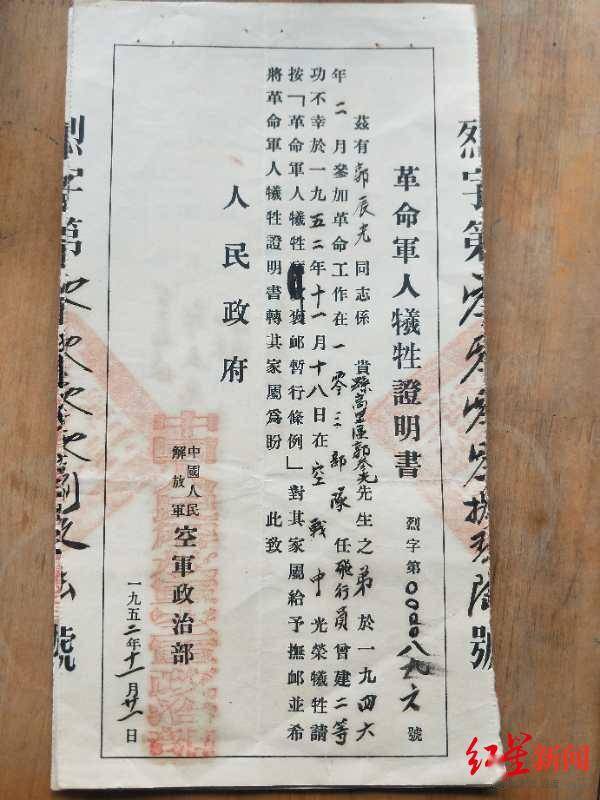 革命軍人犧牲證明書
烈字第0000八九六號
茲有郭辰光同志係貴縣高里區先生之弟於一九四六
年二月參加革命工作在一零三部隊任飛行員曾建二等
功不幸於一九五二年十一月十八日在空戰中光榮犧牲請
按「革命軍人犧牲褒卹暫行條例」對其家屬給予撫卹並希
將革命軍人犧牲證明書轉其家屬爲盼 此致
人民政府
中國人民
解放軍
空軍政治部
一九五二年十一月廿一日
烈字第 號
烈字第 號
红星新闻